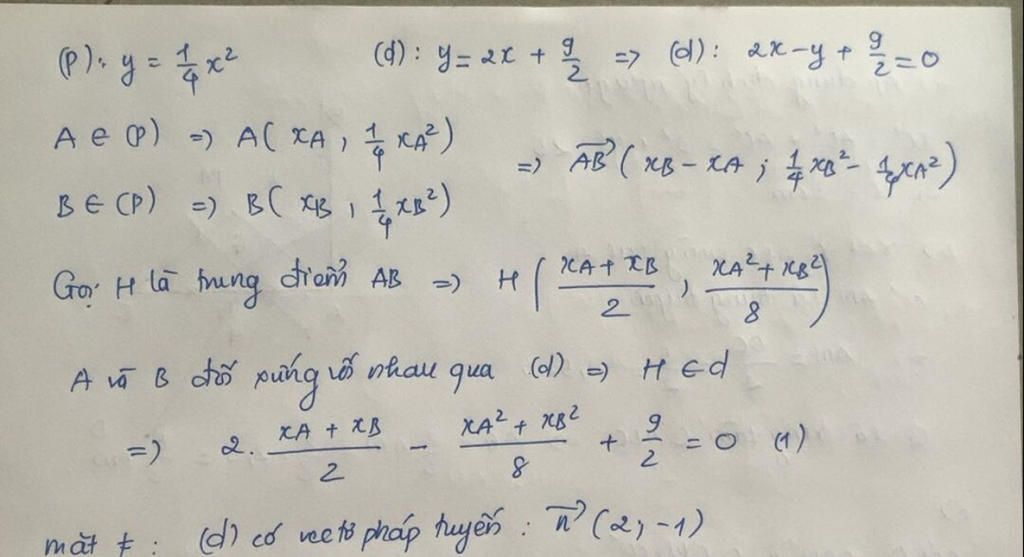 (P): y = 1/4 x² (d): y = 2x + 9/2 => (d): 2x - y + 9/2 = 0
A ∈ (P) => A( xA , 1/4 xA²)
=> AB→ ( xB - xA ; 1/4 xB² - 1/4 xA²)
B ∈ (P) => B( xB , 1/4 xB²)
Gọi H là trung điểm AB => H ( (xA + xB)/2 , (xA² + xB²)/8 )
A và B đối xứng với nhau qua (d) => H ∈ d
=> 2. (xA + xB)/2 - (xA² + xB²)/8 + 9/2 = 0 (1)
mặt ≠ : (d) có vectơ pháp tuyến : n→ (2, -1)